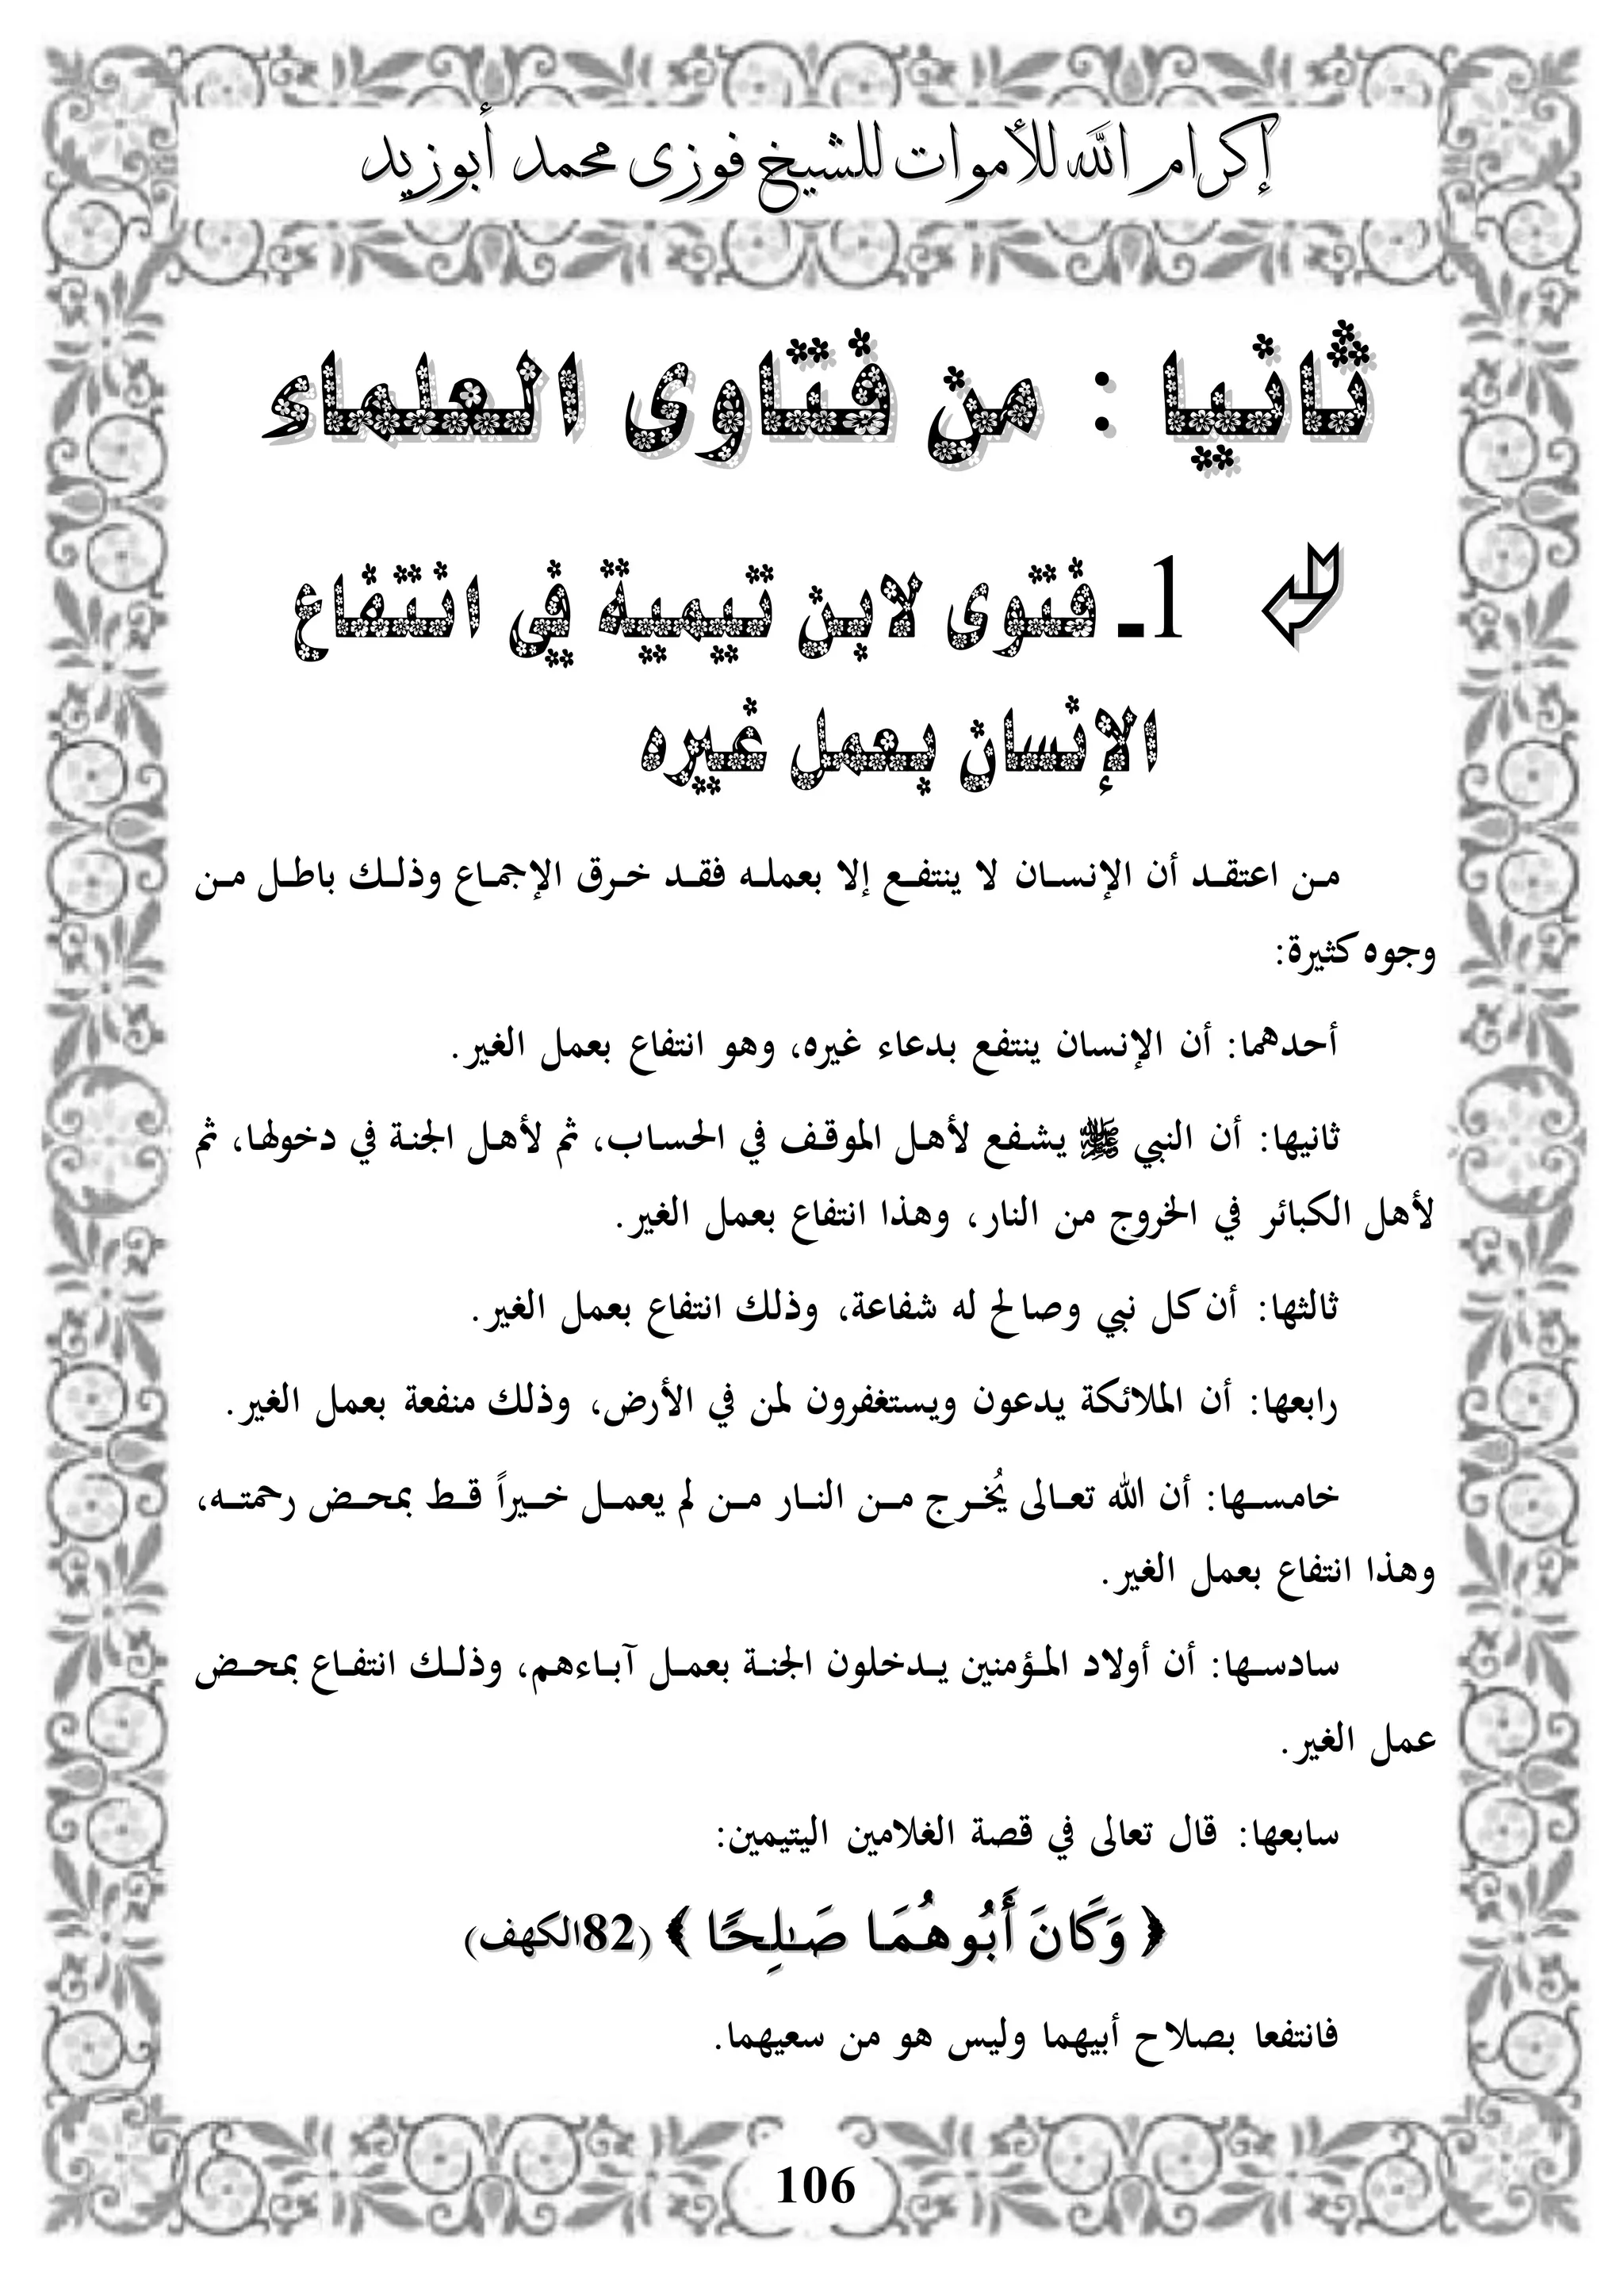 إكرام الله للأموات للشيخ فوزى محمد أبوزيد
ثانيا : من فتاوى العلماء
1ـ فتوى لابن تيمية في انتفاع
الإنسان بعمل غيره
من اعتقد أن الإنسان لا ينتفع إلا بعمله فقد خرق الإجماع وذلك باطل من
وجوه كثيرة:
أحدهما: أن الإنسان ينتفع بدعاء غيره، وهو انتفاع بعمل الغير.
ثانيها: أن النبي ﷺ يشفع لأهل الموقف في الحساب، ثم لأهل الجنة في دخولها، ثم
لأهل الكبائر في الخروج من النار، وهذا انتفاع بعمل الغير.
ثالثها: أن كل نبي وصالح له شفاعة، وذلك انتفاع بعمل الغير.
رابعها: أن الملائكة يدعون ويستغفرون لمن في الأرض، وذلك منفعة بعمل الغير.
خامسها: أن الله تعالى يُخرج من النار من لم يعمل خيراً قط بمحض رحمته،
وهذا انتفاع بعمل الغير.
سادسها: أن أولاد المؤمنين يدخلون الجنة بعمل آباءهم، وذلك انتفاع بمحض
عمل الغير.
سابعها: قال تعالى في قصة الغلامين اليتيمين:
﴿ وَكَانَ أَبُوهُمَا صَـٰلِحًا ﴾ (82الكهف)
فانتفعا بصلاح أبيهما وليس هو من سعيهما.
106